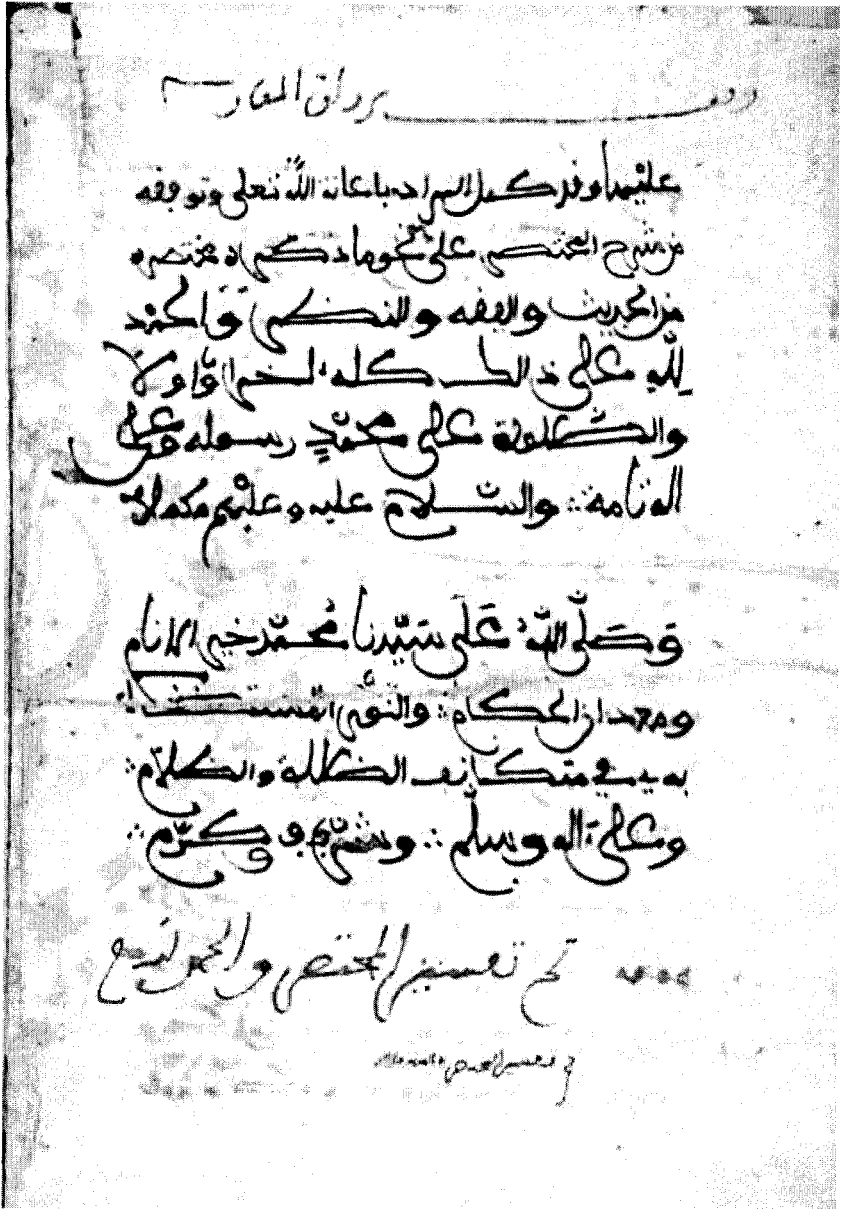 عليهما وقد كمل المراد باعانة الله تعلى وتوفيقه
من شرح المختصر على نحو ما ذكره مختصره
من الحديث والفقه والنظر والحمد
لله على ذلك كله ءاخرا واولا
والصلوة على محمد رسوله وعلى
اله تامة والسلام عليه وعليهم مكملا
وصلى الله على سيدنا محمد خير الانام
ومعدن الحكام والنور المستضاء
به في متكاثف الظلمة والظلام
وعلى ءاله وسلم وشرف وكرم
تم تفسير المختصر والحمد لله
تم تفسير المختصر